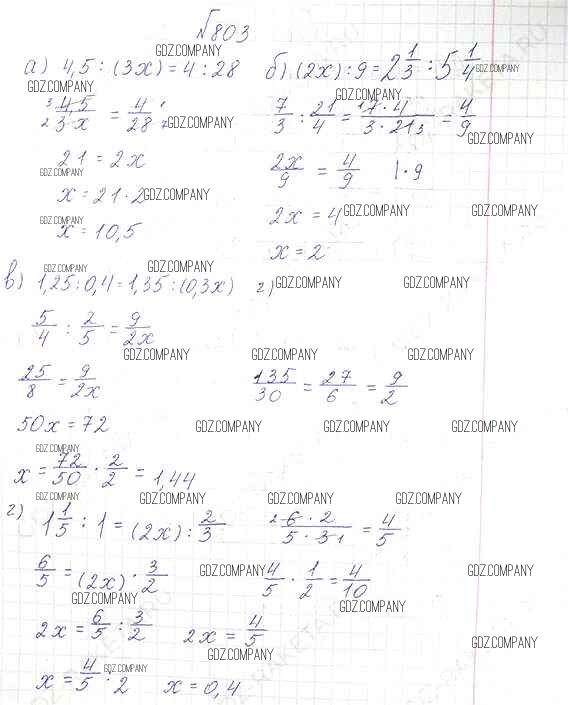 №803
GDZ.COMPANY
а) 4,5 : (3x) = 4 : 28
GDZ.COMPANY
4,5/3·x = 4/28
GDZ.COMPANY
21 = 2x
GDZ.COMPANY
x = 21 · 2
GDZ.COMPANY
GDZ.COMPANY
x = 10,5
б) (2x) : 9 = 2 1/3 : 5 1/4
GDZ.COMPANY
GDZ.COMPANY
7/3 : 21/4 = 7·4/3·21 = 4/9
GDZ.COMPANY
2x/9 = 4/9 | · 9
2x = 4
GDZ.COMPANY GDZ.COMPANY
x = 2
GDZ.COMPANY GDZ.COMPANY
в) 1,25 : 0,4 = 1,35 : (0,3x)
г) GDZ.COMPANY GDZ.COMPANY
5/4 : 2/5 = 9/2x
GDZ.COMPANY GDZ.COMPANY GDZ.COMPANY
25/8 = 9/2x
135/30 = 27/6 = 9/2
50x = 72
GDZ.COMPANY GDZ.COMPANY GDZ.COMPANY
GDZ.COMPANY
x = 72/50 · 2/2 = 1,44
GDZ.COMPANY GDZ.COMPANY GDZ.COMPANY GDZ.COMPANY
г) 1 1/5 : 1 = (2x) : 2/3
6·2/5·3 = 4/5
6/5 = (2x) · 3/2
GDZ.COMPANY GDZ.COMPANY
4/5 · 1/2 = 4/10
GDZ.COMPANY GDZ.COMPANY
2x = 6/5 : 3/2
2x = 4/5
GDZ.COMPANY GDZ.COMPANY
GDZ.COMPANY
x = 4/5 : 2
x = 0,4